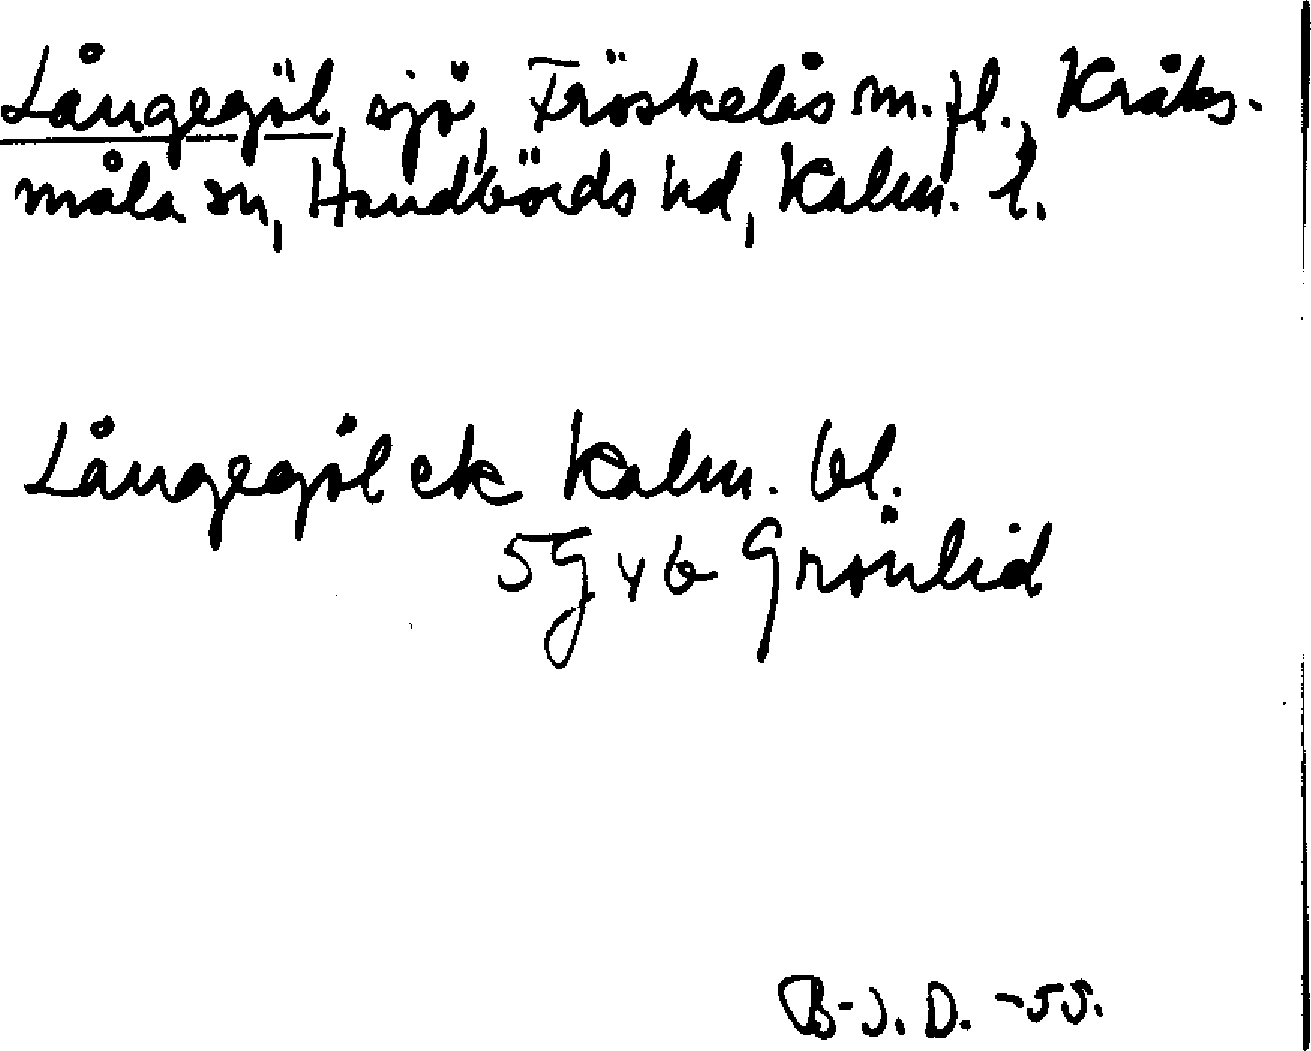 Långegöl, sjö, Fröskelås m.fl., Kråks-
måla sn, Handbörds hd, Kalm. l.
Långegöl ek Kalm. bl.
5 G v b Grönlid
B-J. D. -55.